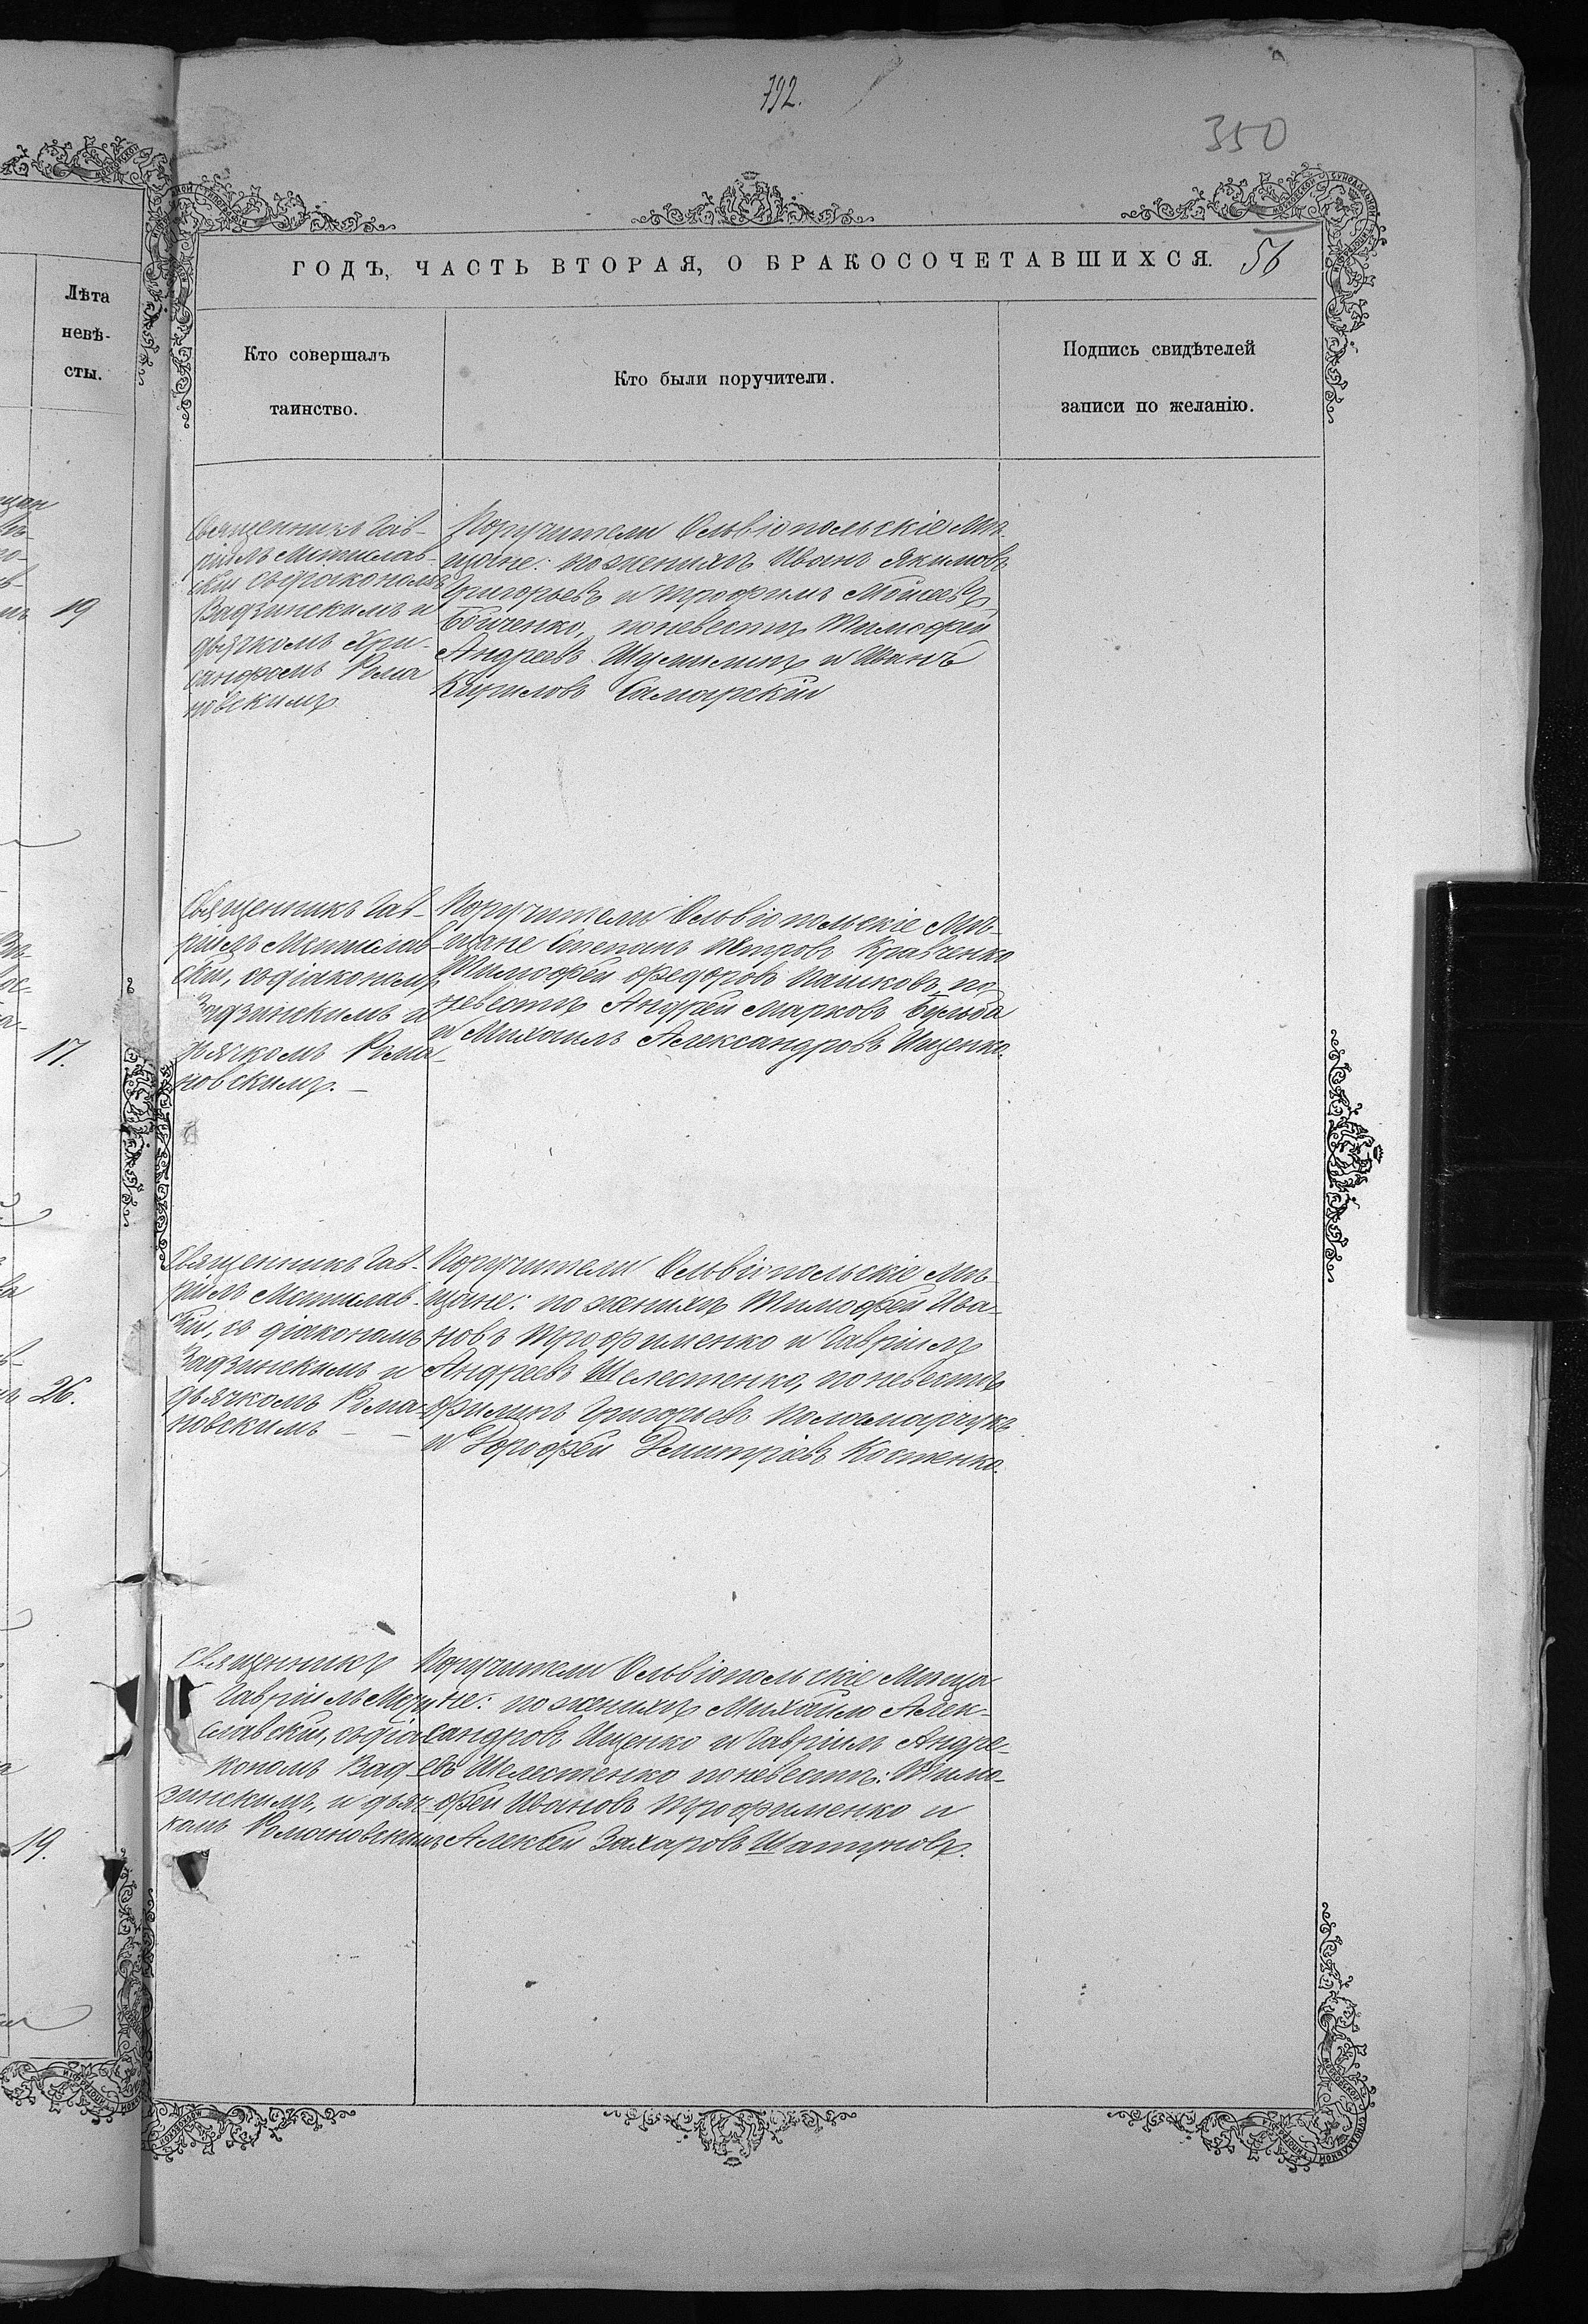 792.
350
ГОДЪ, ЧАСТЬ ВТОРАЯ, О БРАКОСОЧЕТАВШИХСЯ. 56
Лѣта
невѣ-
сты.
Кто совершалъ
таинство.
Кто были поручители.
Подпись свидѣтелей
записи по желанію.
19
Священникъ Гав-
ріилъ Мстислав-
скій съ діакономъ
Вадзинскимъ и
дьячкомъ Хри-
санфомъ Рома
новскимъ
Поручители Ольвіопольскіе Мѣ-
щане: по женихѣ Иванъ Якимовъ
Григорьевъ и Трофимъ Моисеевъ
Бойченко, по невестѣ Тимофей
Андреевъ Шумилинъ и Иванъ
Кирилловъ Самарскій
17.
Священникъ Гав-
ріилъ Мстислав-
скій, съ діакономъ
Вадзинскимъ и
дьячкомъ Рома-
новскимъ. —
Поручители Ольвіопольскіе Мѣ-
щане Степанъ Петровъ Кравченко
Тимофей Федоровъ Пашковъ, по
невестѣ Андрей Марковъ Бульба
и Михаилъ Александровъ Ищенко.
26.
Священникъ Гав-
ріилъ Мстислав-
скій, съ діакономъ
Вадзинскимъ и
дьячкомъ Рома-
новскимъ — —
Поручители Ольвіопольскіе Мѣ-
щане: по женихѣ Тимофей Ива-
новъ Трофименко и Гавріилъ
Андреевъ Шелестенко, по невестѣ
Филипъ Григорьевъ Паламарчукъ
и Дорофей Дмитріевъ Костенко.
19.
Священникъ
Гавріилъ Мсти
славскій, съ діа
кономъ Вад-
зинскимъ, и дьяч-
комъ Романовскимъ
Поручители Ольвіопольскіе Мѣща
не: по женихѣ Михаилъ Алек-
сандровъ Ищенко и Гавріилъ Андре-
евъ Шелестенко по невестѣ: Тимо-
фей Ивановъ Трофименко и
Алексѣй Захаровъ Шатуновъ.